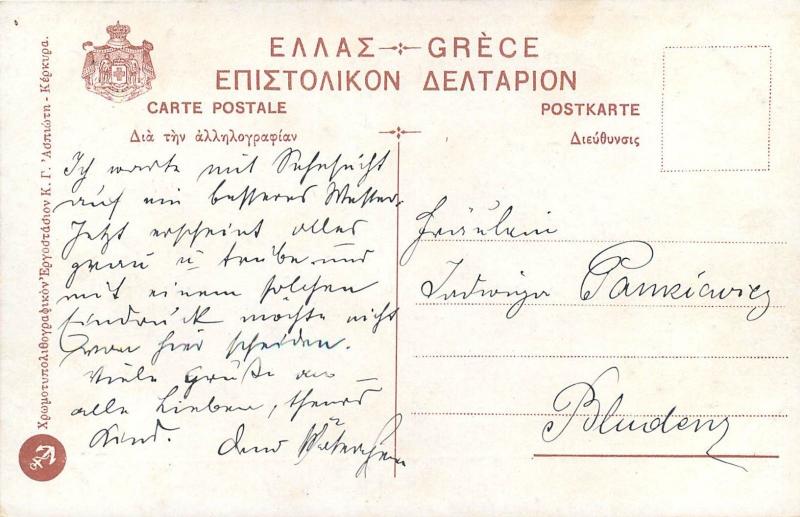 ΕΛΛΑΣ GRÈCE
ΕΠΙΣΤΟΛΙΚΟΝ ΔΕΛΤΑΡΙΟΝ
CARTE POSTALE
POSTKARTE
Διὰ τὴν ἀλληλογραφίαν
Διεύθυνσις
Ich warte mit Sehnsucht
auf ein besseres Wetter.
Jetzt erscheint alles
grau u trübe und
mit einem solchen
Eindruck möchte nicht
von hier scheiden.
Viele Grüße an
alle Lieben, theures
Kind. Dein Väterchen
Fräulein
Jadwiga Pankiewicz
Bludenz
Χρωμοτυπολιθογραφικὸν Ἐργοστάσιον Κ. Γ. Ἀσπιώτη - Κέρκυρα.